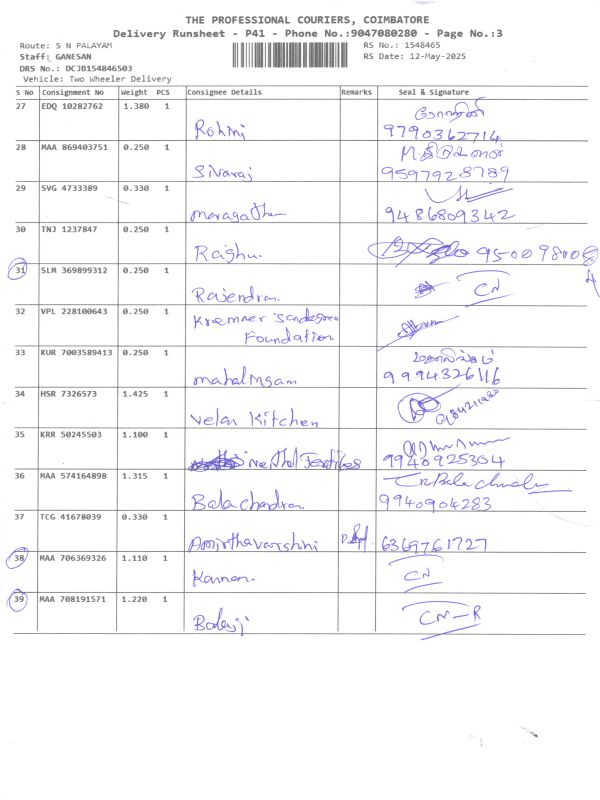 THE PROFESSIONAL COURIERS, COIMBATORE
Delivery Runsheet - P41 - Phone No.:9047080280 - Page No.:3
Route: S N PALAYAM RS No.: 1548465
Staff: GANESAN RS Date: 12-May-2025
DRS No.: DCJB154846503
Vehicle: Two Wheeler Delivery
S No Consignment No Weight PCS Consignee Details Remarks Seal & Signature
27 EDQ 10282762 1.380 1 ரோஹினி
Rohini 9790362714
28 MAA 869403751 0.250 1
Sivaraj 9597928789
29 SVG 4733389 0.330 1
maragatham 9486809342
30 TNJ 1237847 0.250 1
Raghu.
31 SLM 369899312 0.250 1
Rajendran. CN
32 VPL 228100643 0.250 1
Foundation
33 KUR 7003589413 0.250 1 மகாலிங்கம்
mahalingam 9994326116
34 HSR 7326573 1.425 1
Velan Kitchen
35 KRR 50245503 1.100 1
9940925304
36 MAA 574164898 1.315 1
Balachandran 9940904283
37 TCG 41678039 0.330 1
Amirthavarshni 6369761727
38 MAA 706369326 1.110 1
Kannan. CN
39 MAA 708191571 1.220 1
Balaji CN-R